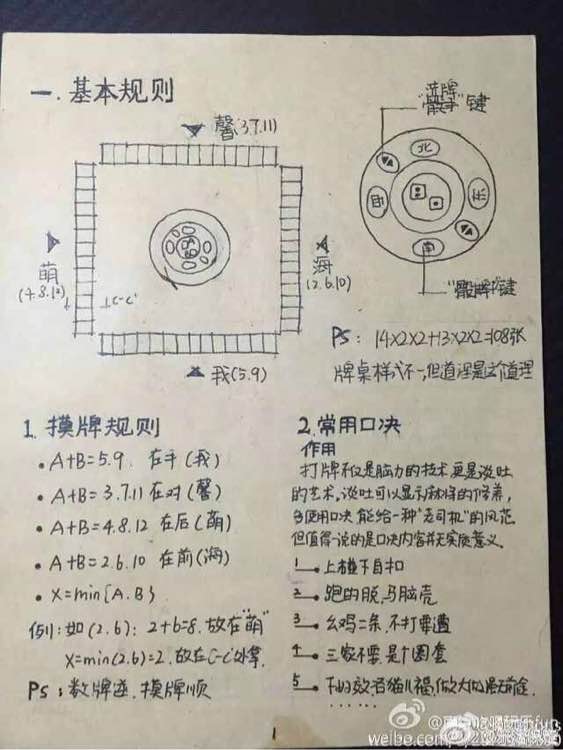 一.基本规则
馨(3.7.11)
萌
(4.8.12)
C-C'
海
(2.6.10)
我(5.9)
洗牌
"骰子"键
北
西
南
"骰牌"键
PS: 14×2×2+13×2×2=108张
牌桌样式不一,但道理是这个道理
1.摸牌规则
• A+B=5.9 在手(我)
• A+B=3.7.11 在对(馨)
• A+B=4.8.12 在后(萌)
• A+B=2.6.10 在前(海)
• X=min{A.B}
例:如(2.6): 2+6=8,放在"萌"
X=min(2.6)=2,放在C-C'处拿.
PS:数牌逆,摸牌顺
2.常用口决
作用
打牌不仅是脑力的技术,更是谈吐
的艺术,谈吐可以显示麻将的修养,
多使用口决能给一种"老司机"的风范
但值得一说的是口决内容并无实质意义.
1 上碰下自扣
2 跑的脱,马脑壳
3 幺鸡二条,不打要遭
4 三家不要,是个圈套
5
......
1
weibo.com/